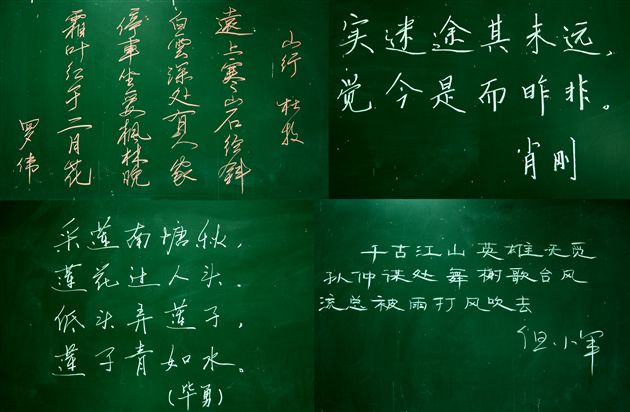 山行 杜牧
遠上寒山石径斜
白雲深处有人家
停車坐爱楓林晚
霜叶红于二月花
罗伟
实迷途其未远,
觉今是而昨非。
肖刚
采莲南塘秋,
莲花过人头.
低头弄莲子,
莲子青如水。
(毕勇)
千古江山 英雄无觅
孙仲谋处 舞榭歌台风
流总被雨打风吹去
但小军